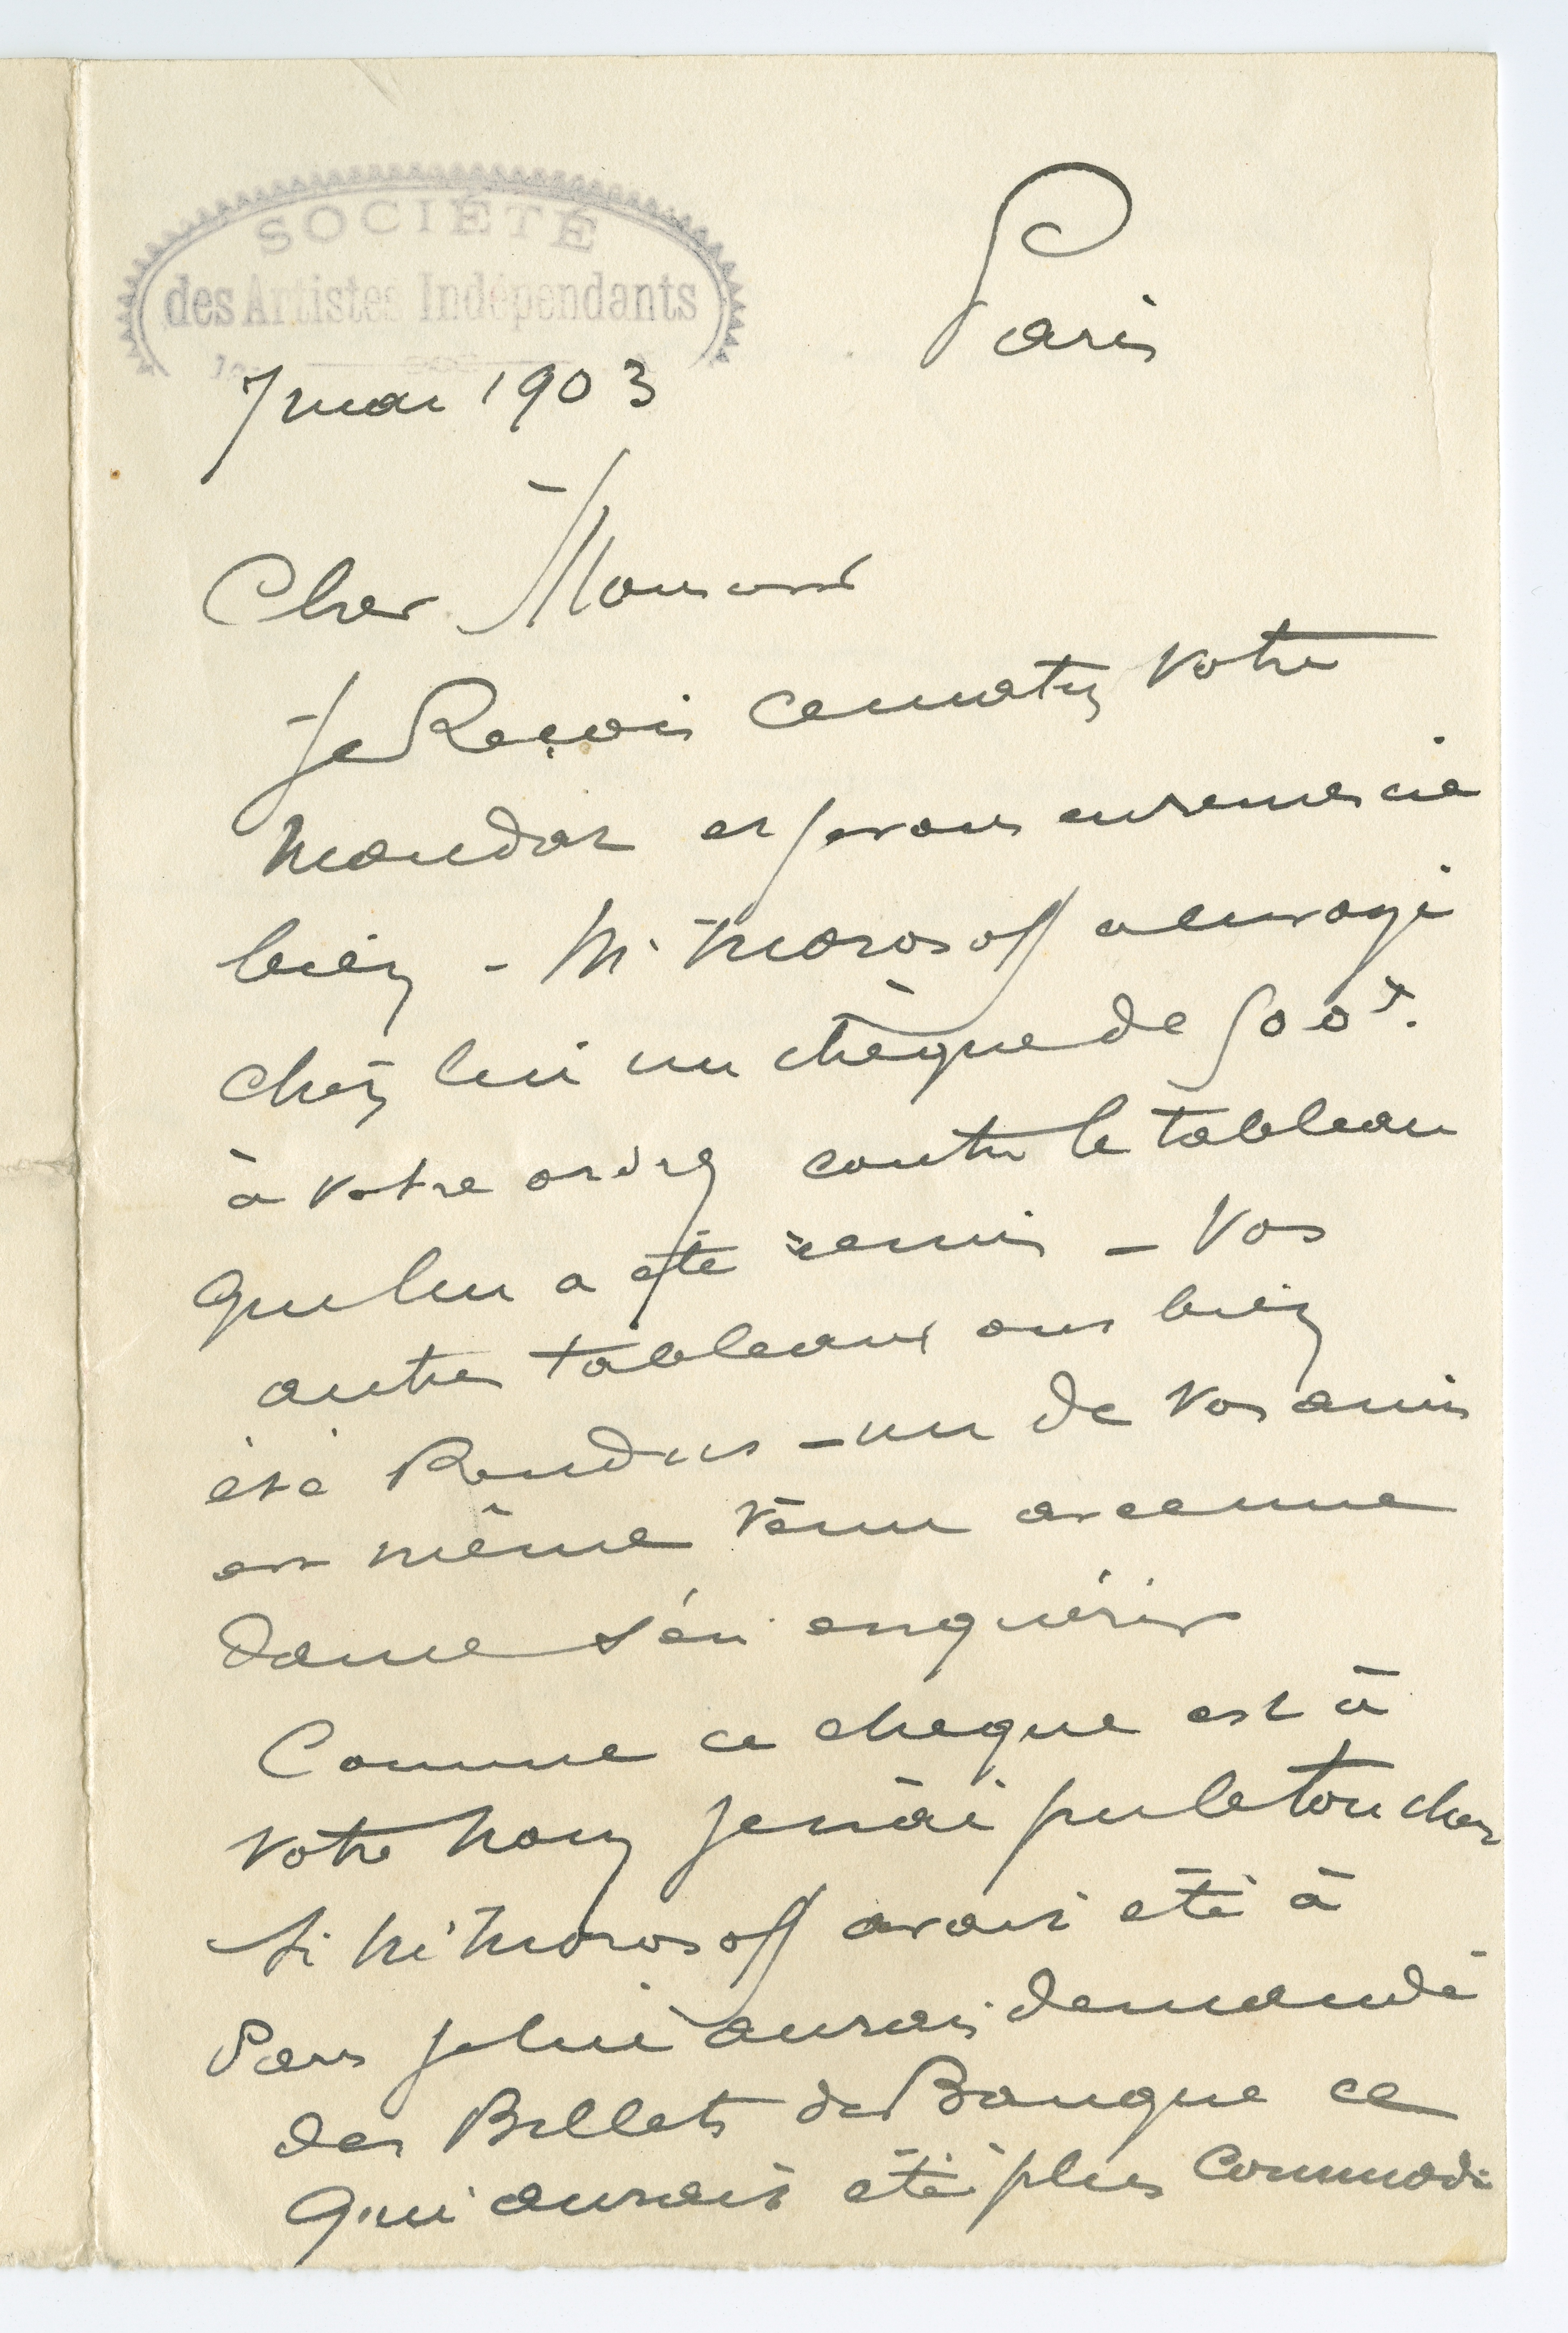 SOCIÉTÉ
des Artistes Indépendants
Paris
7 mai 1903
Cher Monsieur
Je Reçois ce matin votre
mandat et je vous en remercie
bien - M. Morosoff a envoyé
chez lui un chèque de 500f.
à votre ordre contre le tableau
qui lui a été remis - Vos
autres tableaux ont bien
été Rendus - un de vos amis
est même venu avec une
dame s'en enquérir
Comme ce cheque est à
votre nom je n'ai pu le toucher
Si M. Morosoff avait été à
Paris je lui aurais demandé
des Billets de Banque ce
qui aurait été plus commode